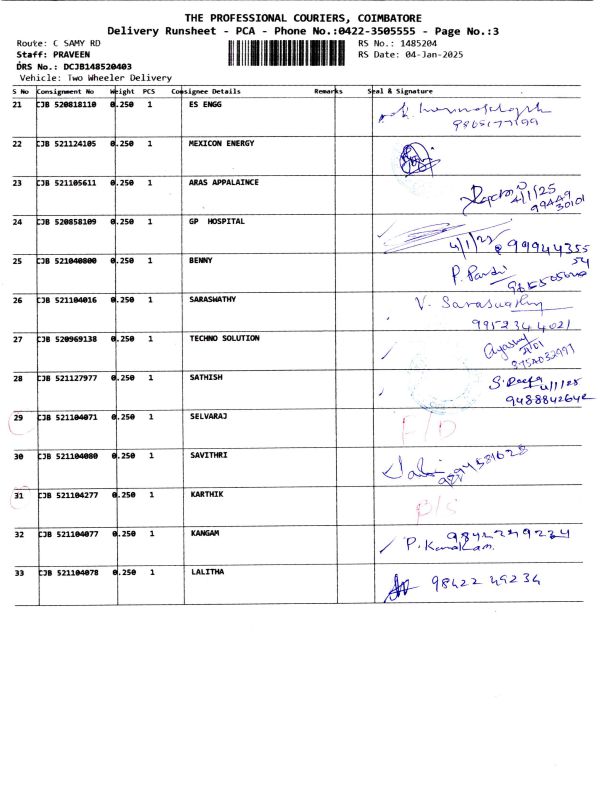 THE PROFESSIONAL COURIERS, COIMBATORE
Delivery Runsheet - PCA - Phone No.:0422-3505555 - Page No.:3
Route: C SAMY RD RS No.: 1485204
Staff: PRAVEEN RS Date: 04-Jan-2025
DRS No.: DCJB148520403
Vehicle: Two Wheeler Delivery
S No Consignment No Weight PCS Consignee Details Remarks Seal & Signature
21 CJB 520818110 0.250 1 ES ENGG
22 CJB 521124105 0.250 1 MEXICON ENERGY
23 CJB 521105611 0.250 1 ARAS APPALAINCE
4/1/25
99449
30101
24 CJB 520858109 0.250 1 GP HOSPITAL
4/1/25 @ 99944355
54
25 CJB 521040800 0.250 1 BENNY
26 CJB 521104016 0.250 1 SARASWATHY V. Saraswathy
9952344021
27 CJB 520969138 0.250 1 TECHNO SOLUTION
28 CJB 521127977 0.250 1 SATHISH
4/1/25
9488842642
29 CJB 521104071 0.250 1 SELVARAJ F/D
30 CJB 521104080 0.250 1 SAVITHRI
31 CJB 521104277 0.250 1 KARTHIK
32 CJB 521104077 0.250 1 KANGAM 9842249234
33 CJB 521104078 0.250 1 LALITHA 98422 49234